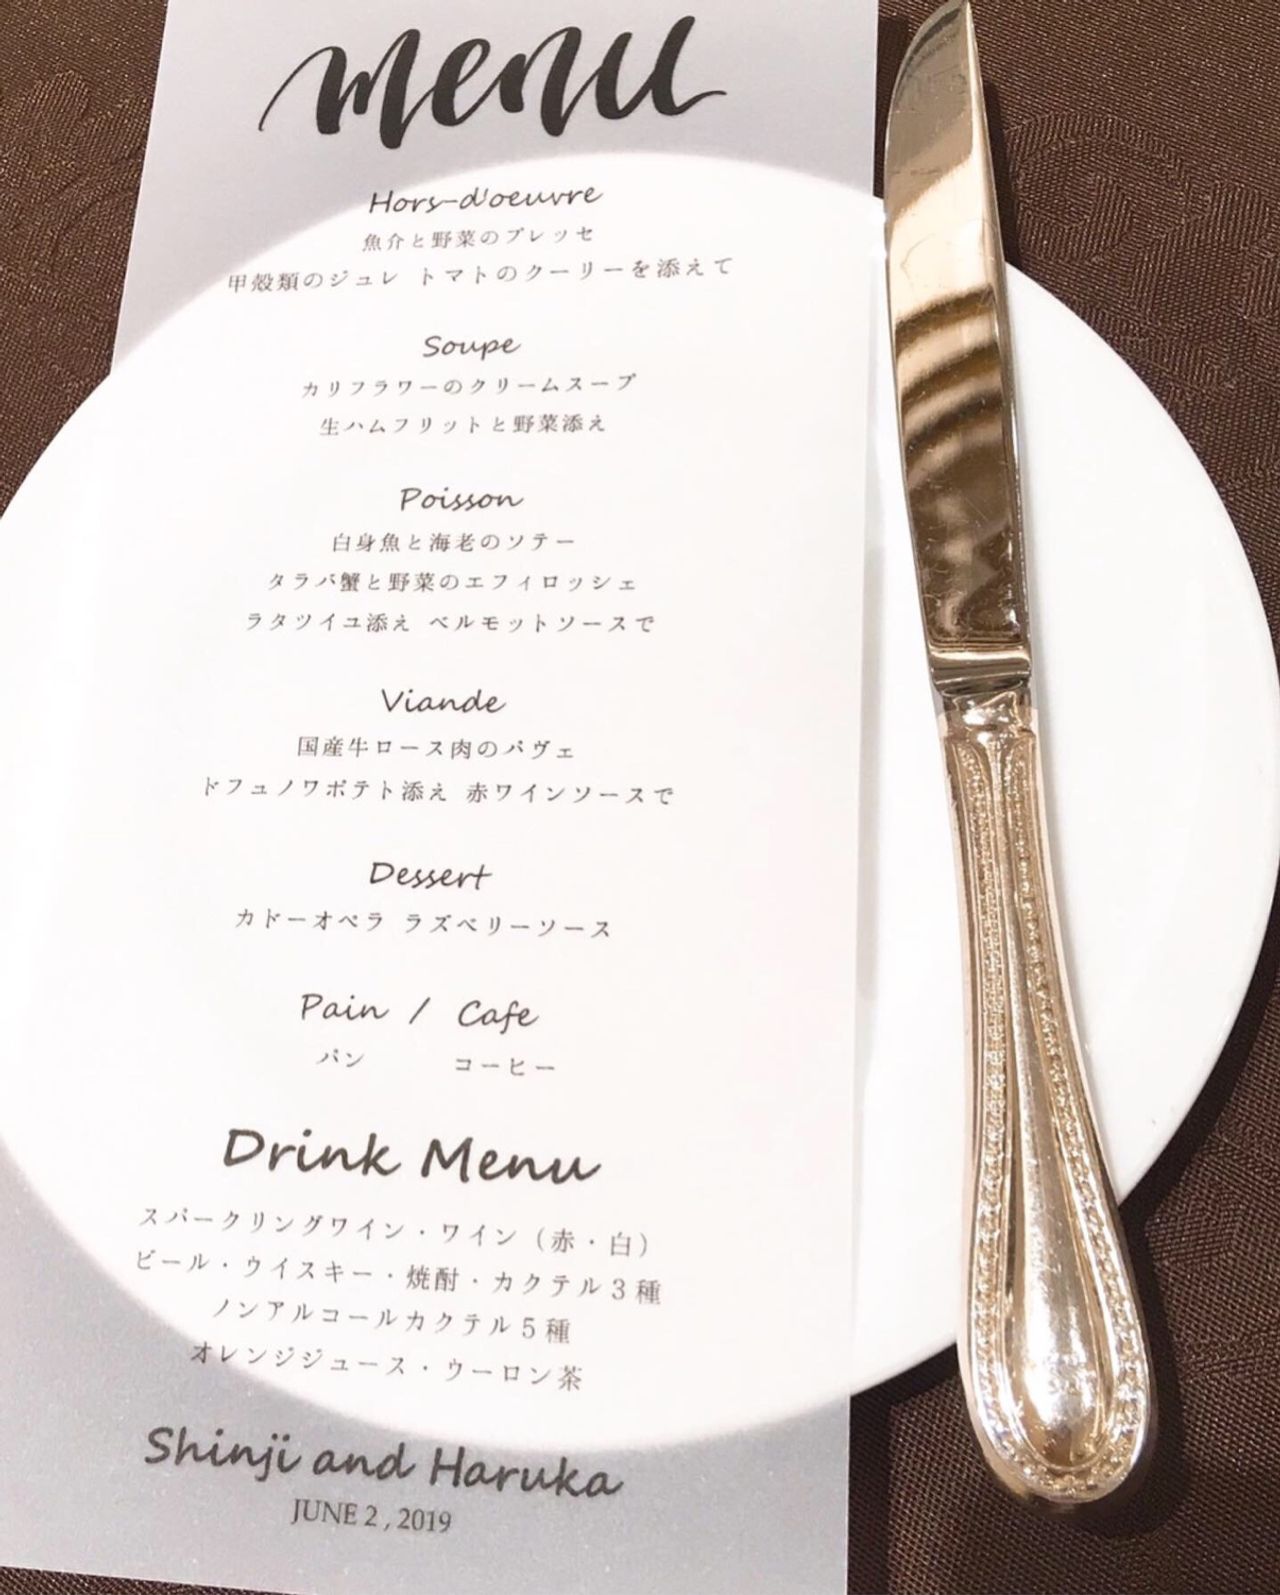 menu
Hors-d'oeuvre
魚介と野菜のプレッセ
甲殻類のジュレ トマトのクーリーを添えて
Soupe
カリフラワーのクリームスープ
生ハムフリットと野菜添え
Poisson
白身魚と海老のソテー
タラバ蟹と野菜のエフィロッシェ
ラタツイユ添え ベルモットソースで
Viande
国産牛ロース肉のパヴェ
ドフュノワポテト添え 赤ワインソースで
Dessert
カドーオペラ ラズベリーソース
Pain / Cafe
パン コーヒー
Drink Menu
スパークリングワイン・ワイン（赤・白）
ビール・ウイスキー・焼酎・カクテル３種
ノンアルコールカクテル５種
オレンジジュース・ウーロン茶
Shinji and Haruka
JUNE 2 , 2019